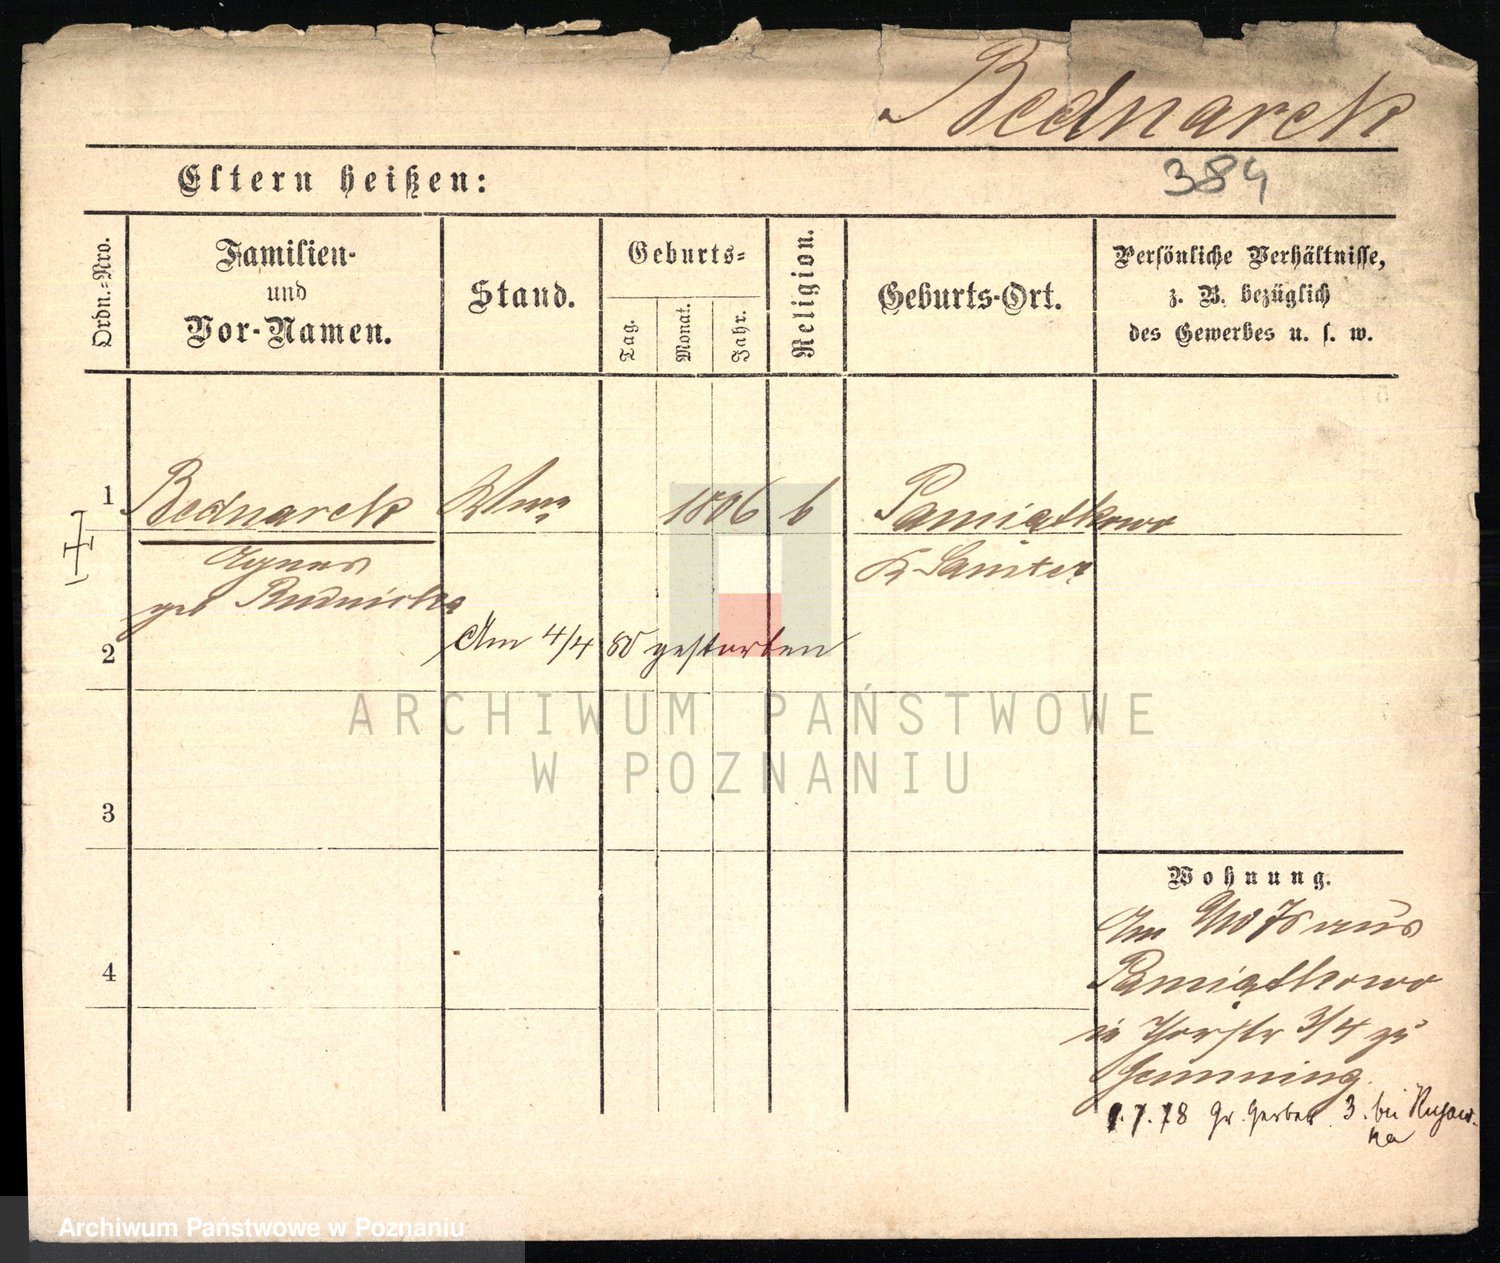 Bednarek
384
Eltern heißen:
Ordn.-Nro.
Familien-
und
Vor-Namen.
Stand.
Geburts-
Tag.
Monat.
Jahr.
Religion.
Geburts-Ort.
Persönliche Verhältnisse,
z. B. bezüglich
des Gewerbes u. s. w.
1
Bednarek
1806
Pamiątkowo
Agnes
geb Rudnicka
2
Am 4/4 80 gestorben
3
4
Wohnung.
aus
Pamiątkowo
in 3/4 zu
78 Gr. Gerber 3. bei
ARCHIWUM PAŃSTWOWE
W POZNANIU
Archiwum Państwowe w Poznaniu